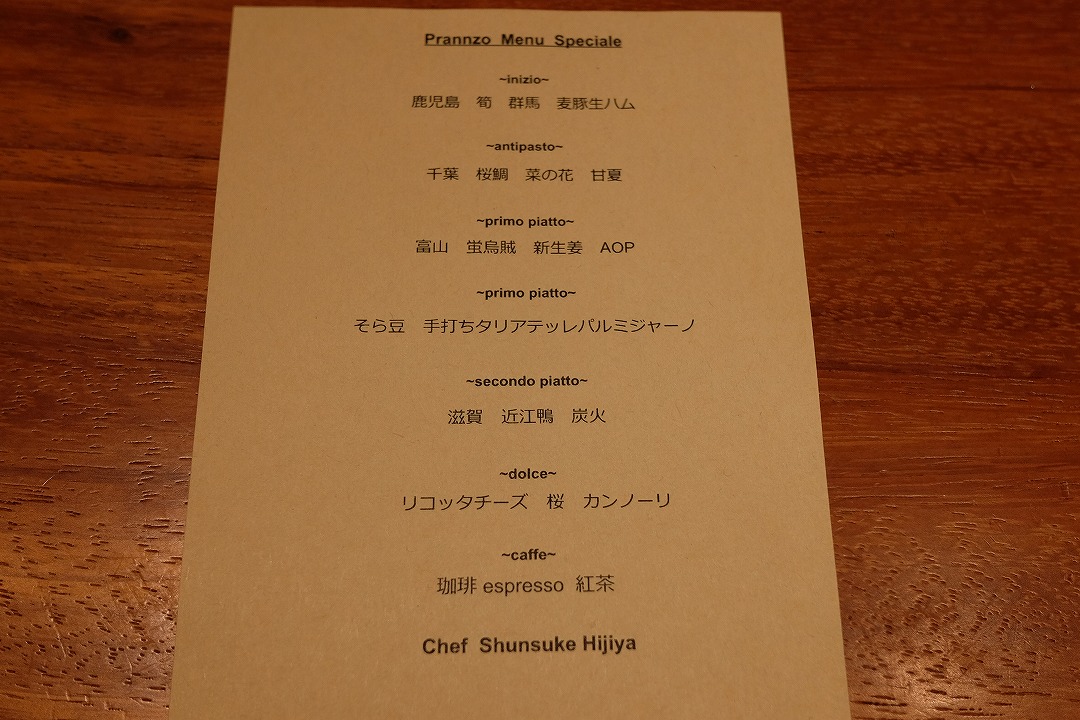 Prannzo Menu Speciale
~inizio~
鹿児島 筍 群馬 麦豚生ハム
~antipasto~
千葉 桜鯛 菜の花 甘夏
~primo piatto~
富山 蛍烏賊 新生姜 AOP
~primo piatto~
そら豆 手打ちタリアテッレパルミジャーノ
~secondo piatto~
滋賀 近江鴨 炭火
~dolce~
リコッタチーズ 桜 カンノーリ
~caffe~
珈琲 espresso 紅茶
Chef Shunsuke Hijiya